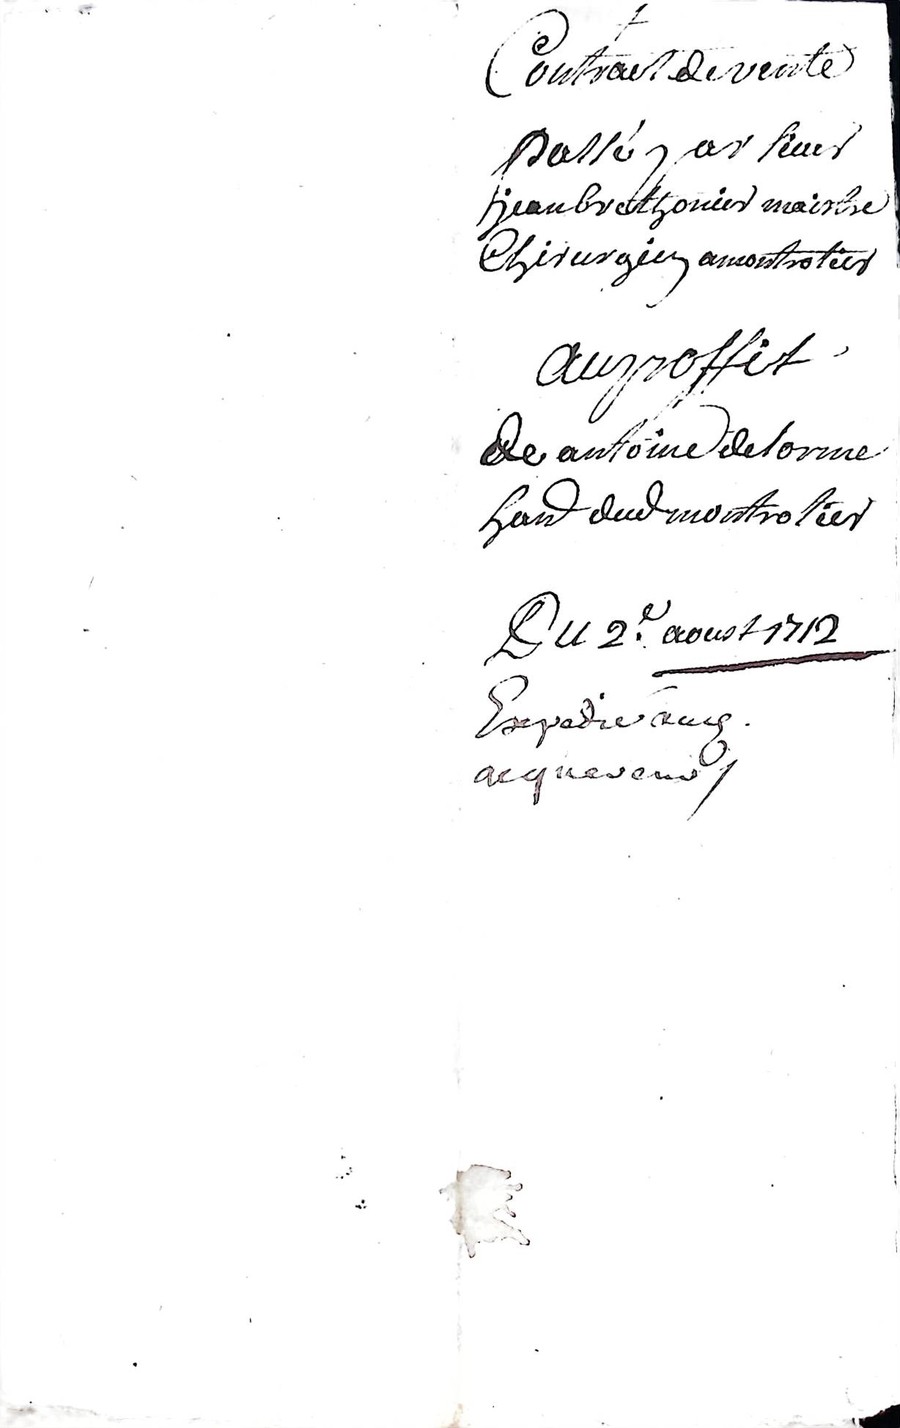 Contract de vente
Passé par sieur
jean brethonier maistre
Chirurgien a montrotier
au proffit
de antoine delorme
hand dud montrotier
Du 2e aoust 1712
Expedié aud
acquereur